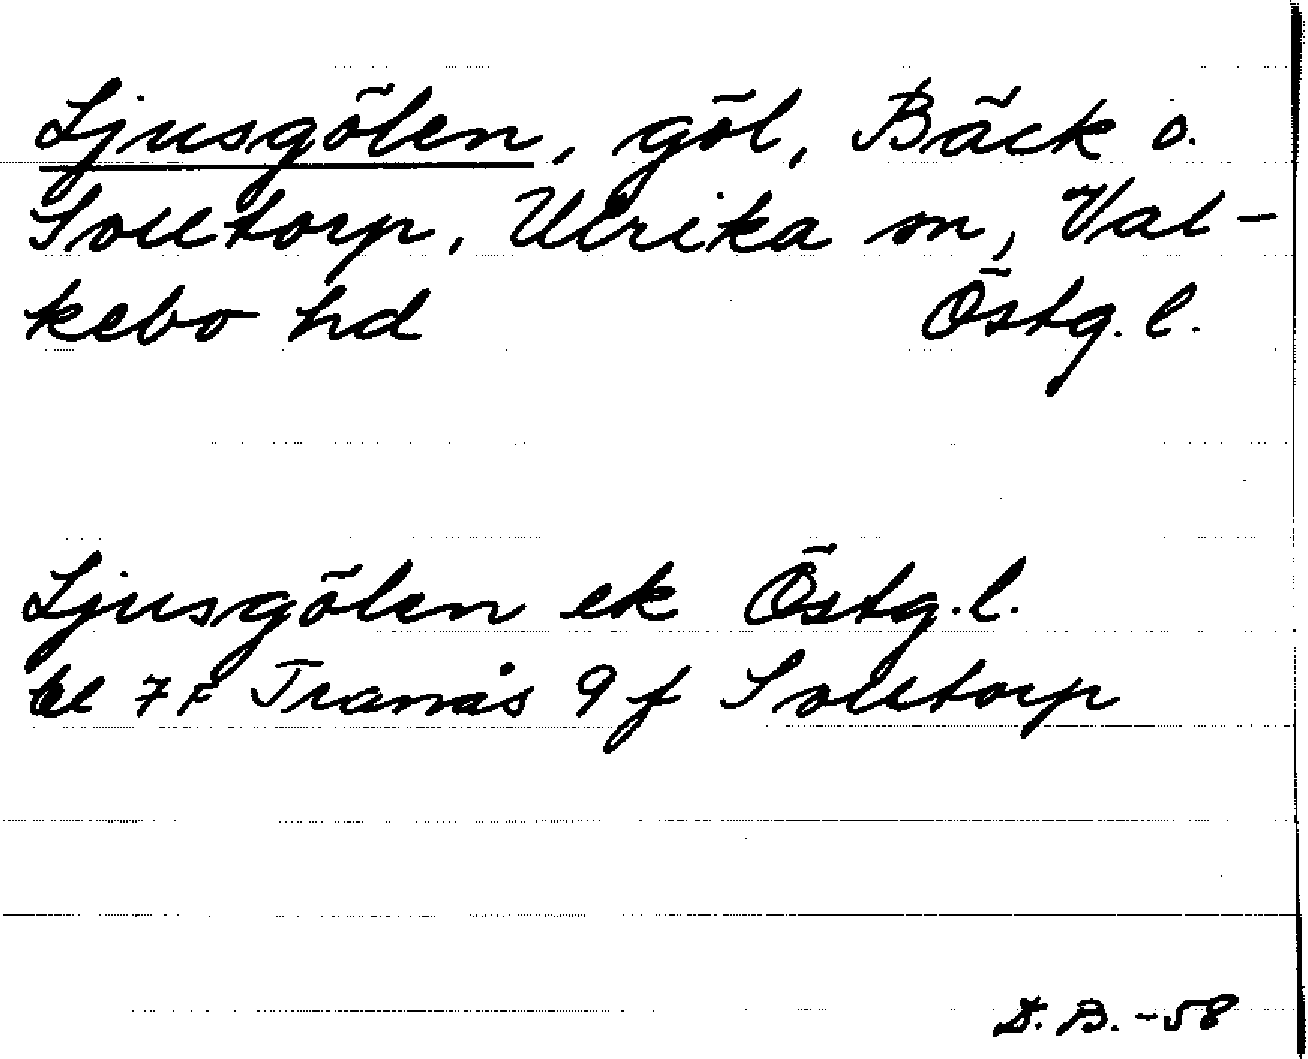 Ljusgölen, göl, Bäck o.
Solltorp, Ulrika sn, Val-
kebo hd Östg. l.
Ljusgölen ek Östg. l.
bl 7F Tranås 9 f Solltorp
D. B. -58